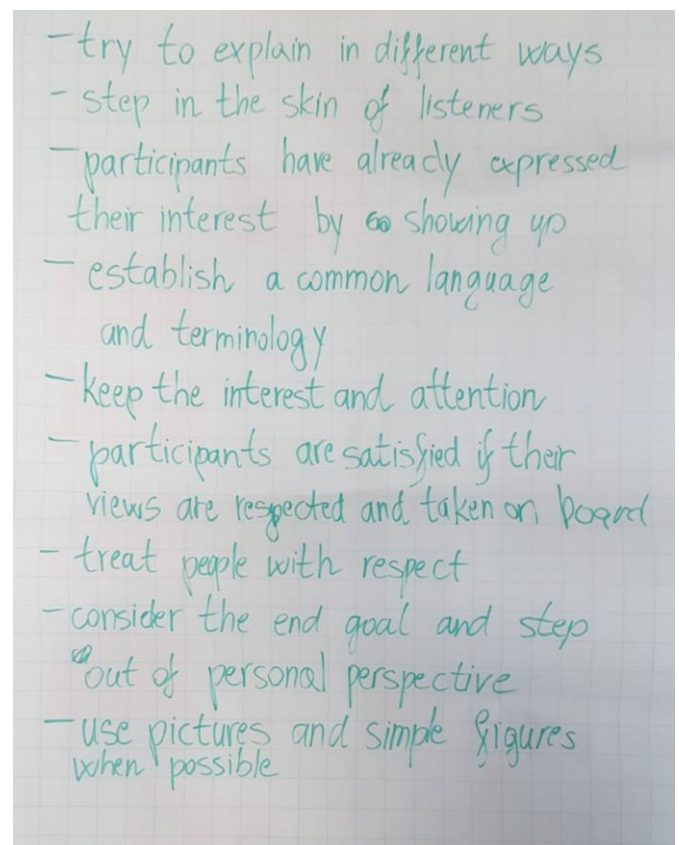 - try to explain in different ways
- step in the skin of listeners
- participants have already expressed
their interest by showing up
- establish a common language
and terminology
- keep the interest and attention
- participants are satisfied if their
views are respected and taken on board
- treat people with respect
- consider the end goal and step
out of personal perspective
- use pictures and simple figures
when possible